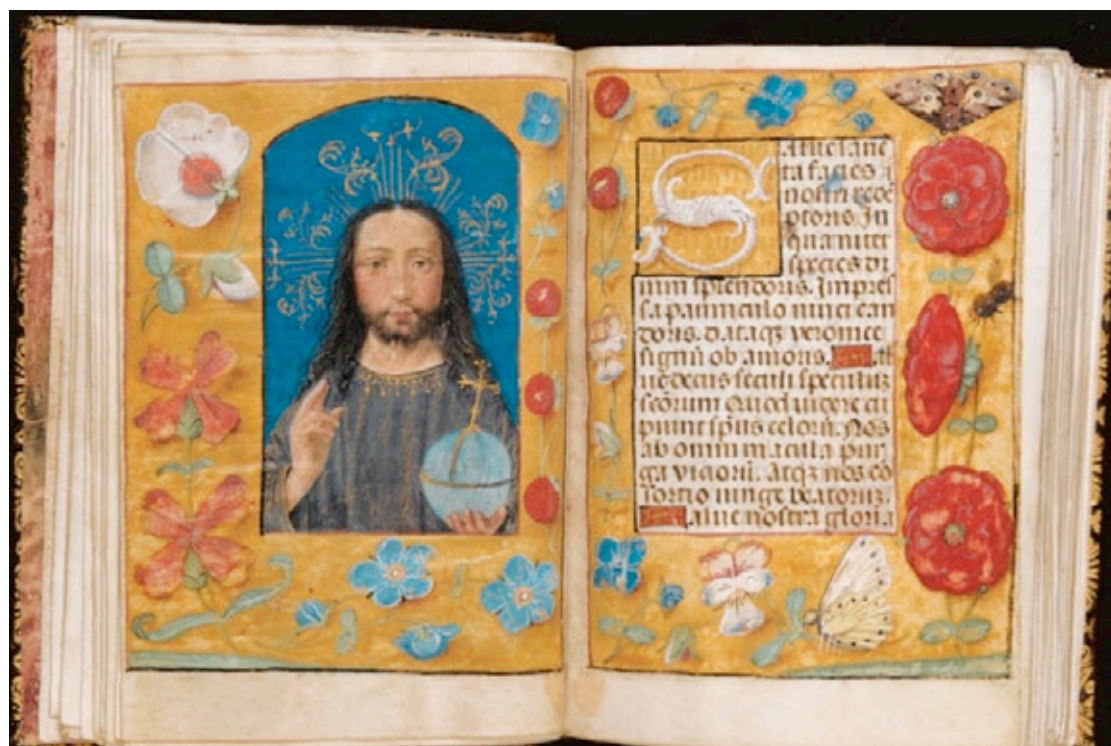 Salue sanc
ta facies
nostri rede
ptoris. In
qua nitet
species di
uini splendoris. Impres
sa panniculo niuei can
doris. Dataqꝫ veronice
signū ob amoris. Sal
ue decus seculi speculūꝫ
scōrum Quod uidere cu
piunt spūs celorū. Nos
ab omni macula pur
ga vicioꝝ. Atqꝫ nos cō
sortio iunge beatoruꝫ.
Salue nostra gloria